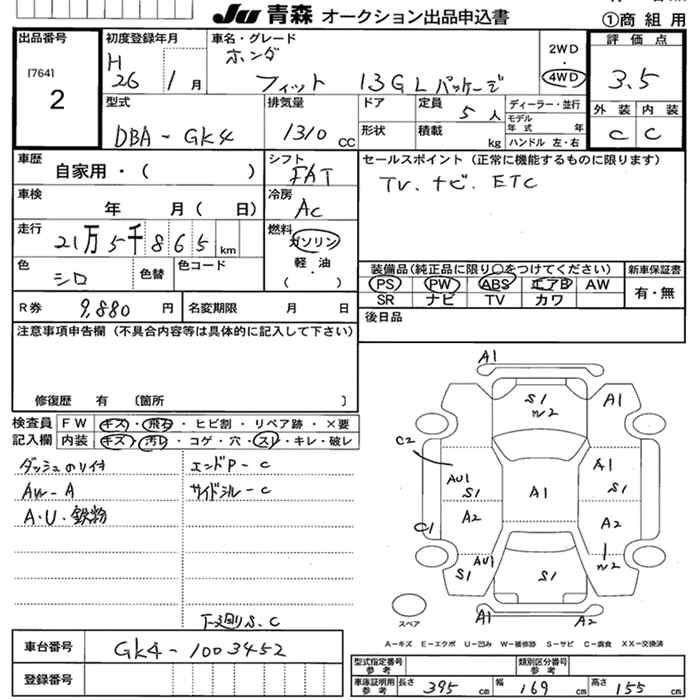 JU 青森 オークション出品申込書
①商組用
出品番号
[7641
2
初度登録年月
H
26 1 月
車名・グレード
ホンダ
フィット 13G Lパッケージ
2WD
・
4WD
評価点
3.5
外装 内装
C C
型式
DBA-GK4
排気量
1310 CC
ドア
形状
定員 5 人
積載 kg
ディーラー・並行
モデル年式 年
ハンドル 左・右
車歴
自家用・( )
シフト
FAT
セールスポイント(正常に機能するものに限ります)
TV. ナビ. ETC
車検
年 月( 日)
冷房
AC
走行
21万5千865 km
燃料
ガソリン
軽・油
( ・ )
色
シロ
色替
色コード
装備品(純正品に限り○をつけてください)
PS PW ABS エアB AW
SR ナビ TV カワ
新車保証書
有・無
R券 9,880 円
名変期限 月 日
後日品
注意事項申告欄(不具合内容等は具体的に記入して下さい)
修復歴 有 〔箇所 〕
検査員
記入欄
FW キズ・飛石・ヒビ割・リペア跡・×要
内装 キズ・汚レ・コゲ・穴・スレ・キレ・破レ
ダッシュのり付
AW-A
A・U・鉄粉
エンドP-C
サイドシル-C
下廻りS.C
A1
S1
W2
A1
C2
AU1
S1
A1
A1
S1
A2
A2
C1
W2
AU1
S1
S1
A1
A2
スペア
A-キズ E-エクボ U-凹み W-補修跡 S-サビ C-腐食 XX-交換済
車台番号 GK4-1003452
登録番号
型式指定番号
参考
類別区分番号
参考
車庫証明用
参考
長さ 395 cm 幅 169 cm 高さ 155 cm